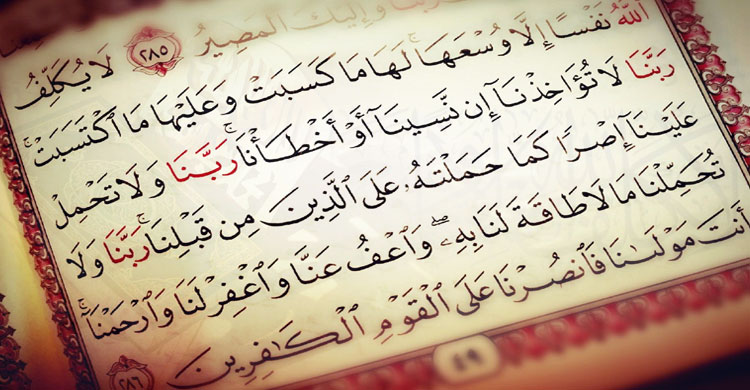 رَبَّنَا وَإِلَيْكَ الْمَصِيرُ ٢٨٥ لَا يُكَلِّفُ
اللَّهُ نَفْسًا إِلَّا وُسْعَهَا لَهَا مَا كَسَبَتْ وَعَلَيْهَا مَا ٱكْتَسَبَتْ
رَبَّنَا لَا تُؤَاخِذْنَآ إِن نَّسِينَآ أَوْ أَخْطَأْنَا رَبَّنَا وَلَا تَحْمِلْ
عَلَيْنَآ إِصْرًا كَمَا حَمَلْتَهُۥ عَلَى ٱلَّذِينَ مِن قَبْلِنَا رَبَّنَا وَلَا
تُحَمِّلْنَا مَا لَا طَاقَةَ لَنَا بِهِۦ ۖ وَٱعْفُ عَنَّا وَٱغْفِرْ لَنَا وَٱرْحَمْنَآ ۚ
أَنتَ مَوْلَىٰنَا فَٱنصُرْنَا عَلَى ٱلْقَوْمِ ٱلْكَٰفِرِينَ
٢٨٦
٤٩